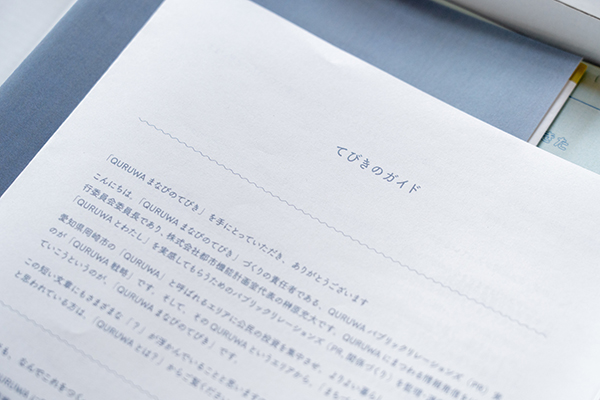 てびきのガイド
「QURUWA まなびのてびき」を手にとっていただき、ありがとうございます
こんにちは、「QURUWA まなびのてびき」づくりの責任者である、QURUWA パブリックリレーションズ（PR）実
行委員会委員長であり、株式会社都市機能計画室代表の榊原充大です。QURUWA にまつわる情報発信を
「QURUWA とわたし」を実感してもらうためのパブリックリレーションズ（PR、関係づくり）を監理
愛知県岡崎市の「QURUWA」と呼ばれるエリアに公民の投資を集中させ、よりよい暮らし
のが「QURUWA 戦略」です。そして、その QURUWA というエリアから、「まちづ
ていこうというのが、「QURUWA まなびのてびき」です。
この短い文章にもさまざまな「？」が浮かんでいることと思います
と思われている方は、「QURUWA とは？」からご覧ください
も、なんでこれをつく